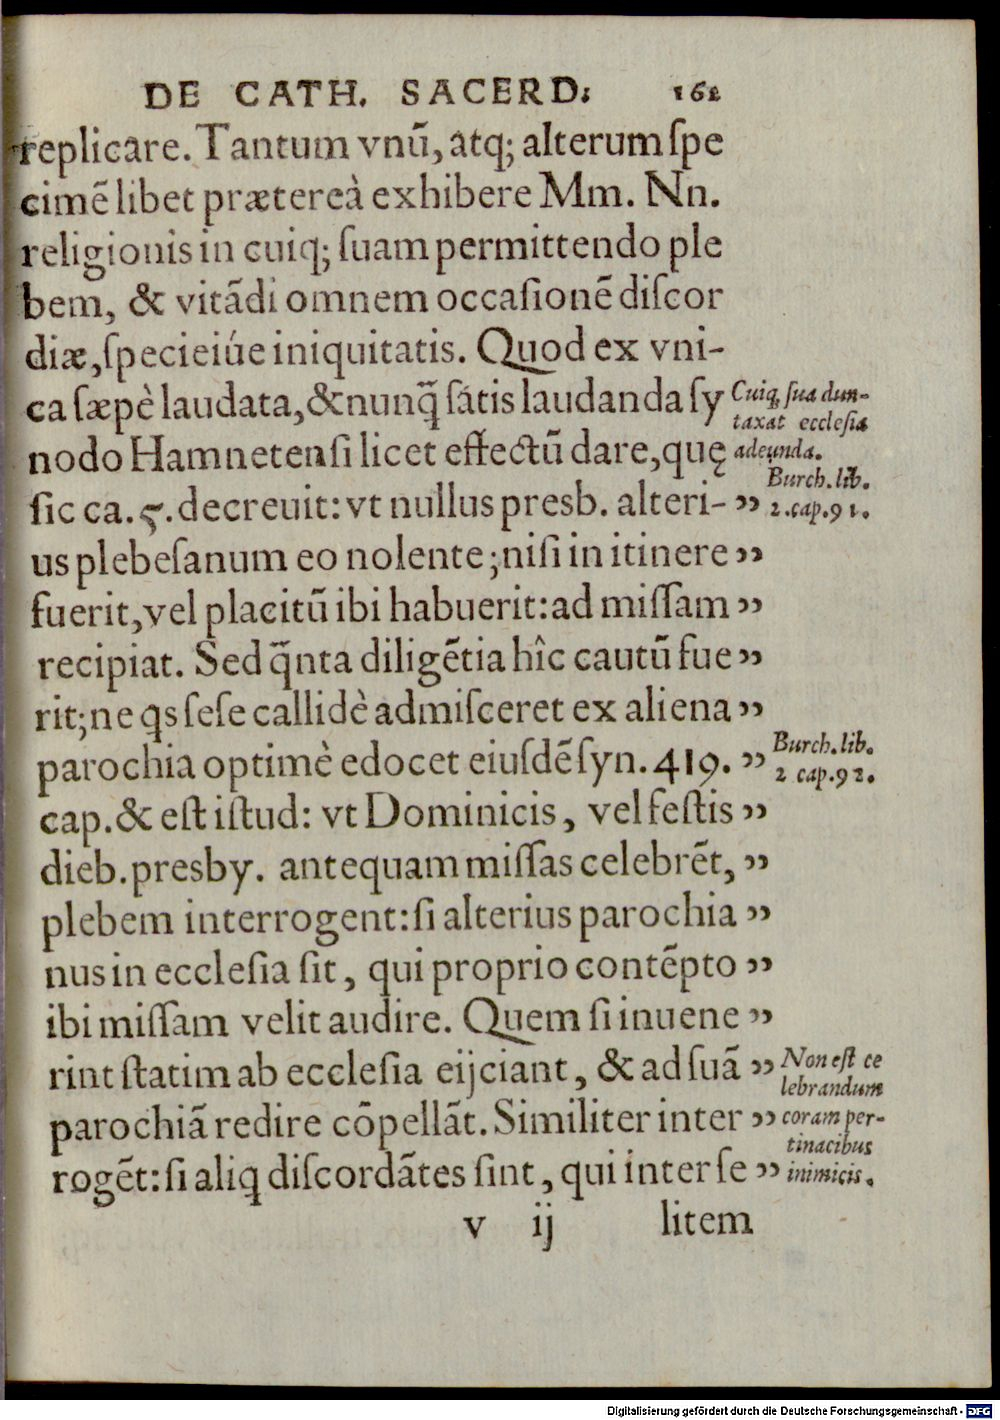 DE CATH. SACERD: 162
replicare. Tantum vnũ, atq; alterum ſpe
cimẽ libet prætereà exhibere Mm. Nn.
religionis in cuiq; ſuam permittendo ple
bem, & vitãdi omnem occaſionẽ diſcor
diæ, ſpecieiúe iniquitatis. Quod ex vni-
ca ſæpè laudata, & nunq̃ ſatis laudanda ſy
nodo Hamnetenſi licet effectũ dare, quę
ſic ca. 5. decreuit: vt nullus presb. alteri- ”
us plebeſanum eo nolente; niſi in itinere ”
fuerit, vel placitũ ibi habuerit: ad miſſam ”
recipiat. Sed q̃nta diligẽtia hîc cautũ fue ”
rit; ne qs ſeſe callidè admiſceret ex aliena ”
parochia optimè edocet eiuſdẽ ſyn. 419. ”
cap. & eſt iſtud: vt Dominicis, vel feſtis ”
dieb. presby. antequam miſſas celebrẽt, ”
plebem interrogent: ſi alterius parochia ”
nus in eccleſia ſit, qui proprio contẽpto ”
ibi miſſam velit audire. Quem ſi inuene ”
rint ſtatim ab eccleſia eijciant, & ad ſuã ”
parochiã redire cõpellãt. Similiter inter ”
rogẽt: ſi aliq diſcordãtes ſint, qui inter ſe ”
v ij litem
Cuiq; ſua dun-
taxat eccleſia
adeunda.
Burch. lib.
2. cap. 91.
Burch. lib.
2 cap. 92.
Non eſt ce
lebrandum
coram per-
tinacibus
inimicis.
Digitalisierung gefördert durch die Deutsche Forschungsgemeinschaft - DFG